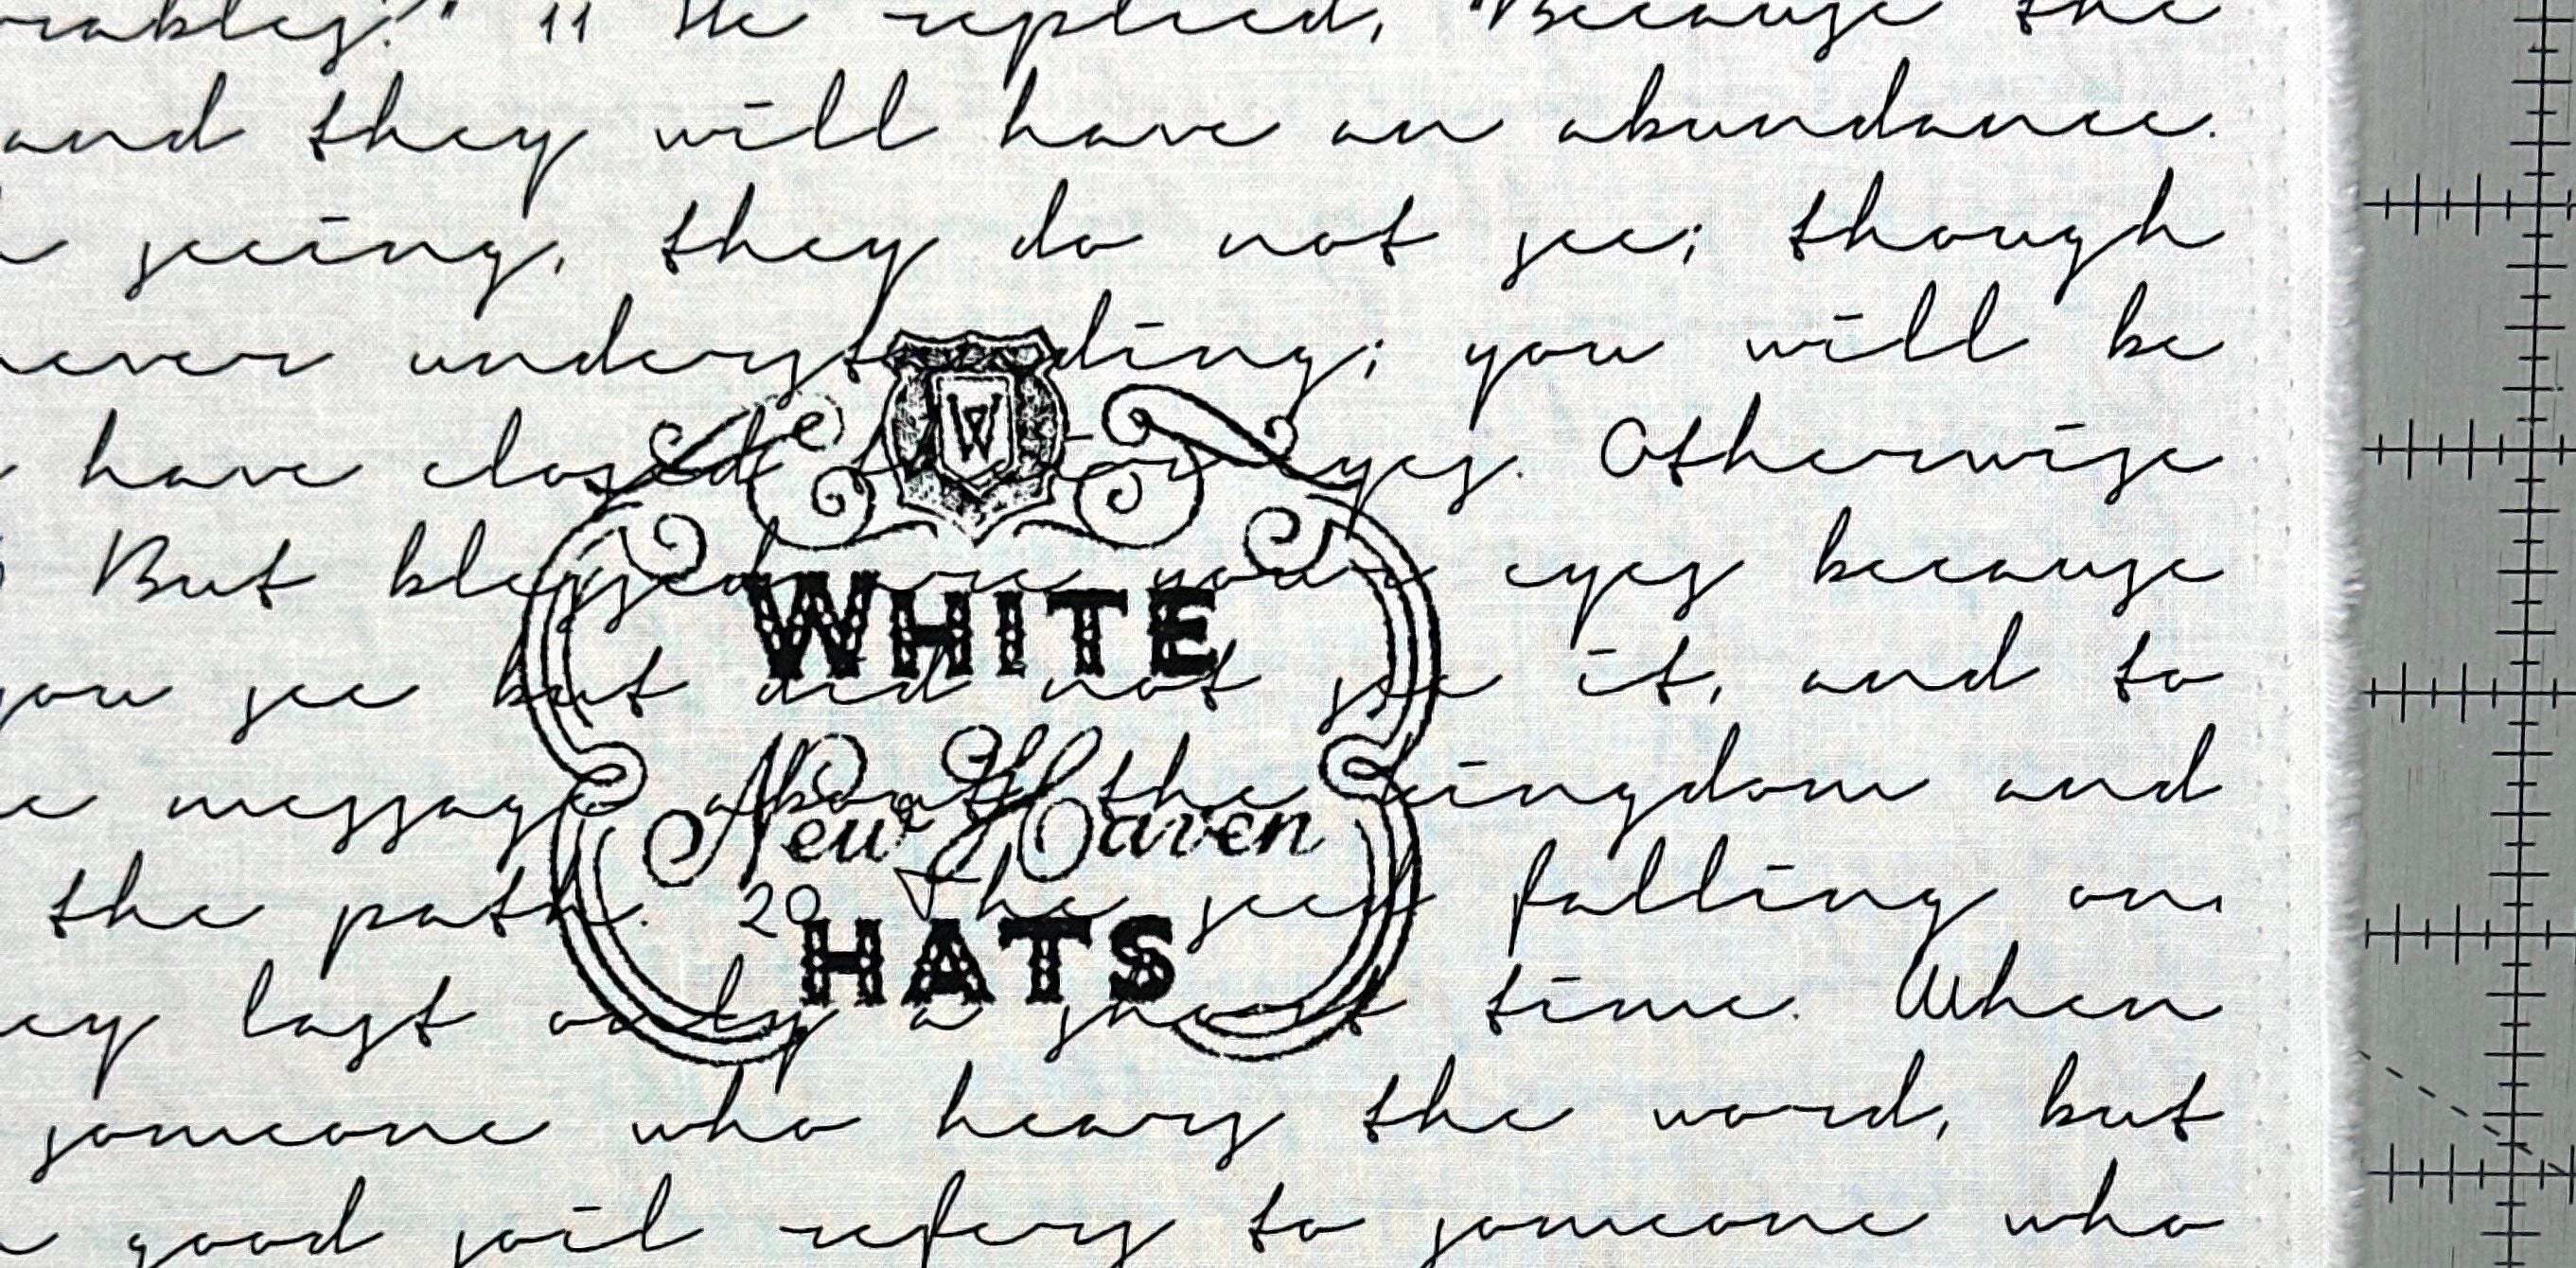 rables?" 11 He replied, "Because the
and they will have an abundance.
seeing, they do not see; though
never understanding; you will be
have closed their eyes. Otherwise
But blessed are your eyes because
you see but did not see it, and to
message about the kingdom and
the path. 20 The seed falling on
ey last only a short time. When
someone who hears the word, but
good soil refers to someone who
W
WHITE
New Haven
HATS